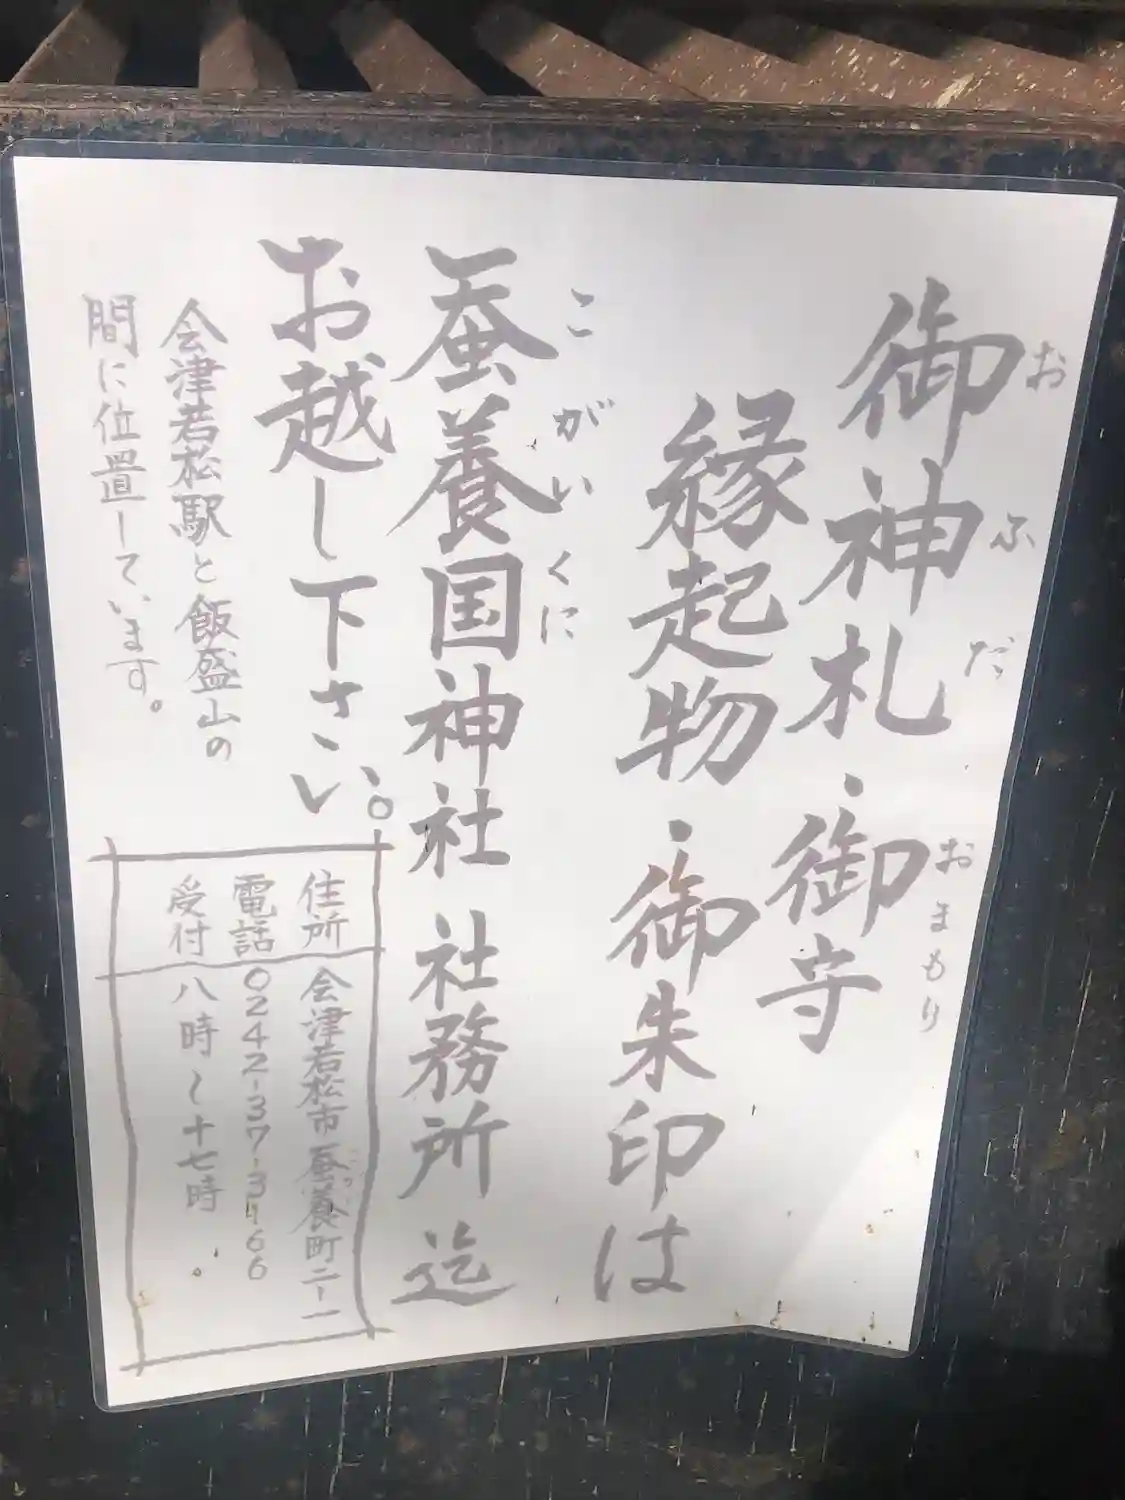 御神札・御守
おふだ
おまもり
縁起物・御朱印は
蚕養国神社 社務所 迄
こがいくに
お越し下さい。
会津若松駅と飯盛山の
間に位置しています。
住所 会津若松市蚕養町二-一
電話 0242-37-3466
受付 八時~十七時